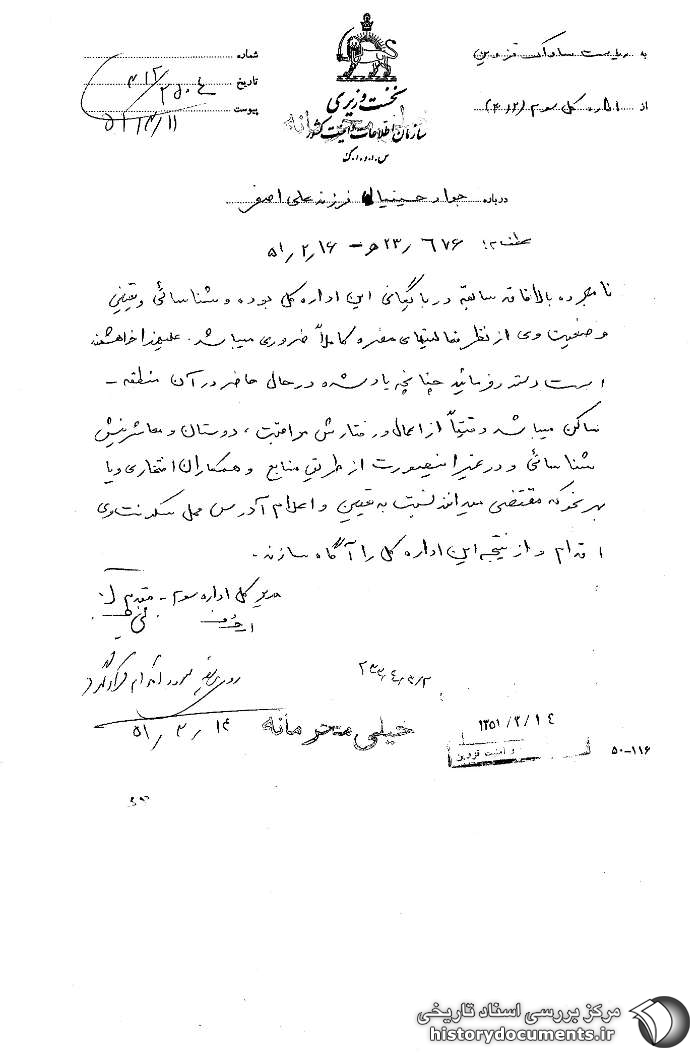 به ریاست ساواک قزوین
از اداره کل سوم (۴۱۲)
نخست وزیری
سازمان اطلاعات و امنیت کشور
س.ا.و.ا.ک
شماره ۴۱۲/
تاریخ ۵۱/۳/۱۱
پیوست
درباره جواد حسینیان فرزند علی اصغر
عطف به: ۲۳/۶۷۶ هـ - ۵۱/۲/۱۶
نامبرده بالا فاقد سابقه در بایگانی این اداره کل بوده و شناسائی و تعیین
وضعیت وی از نظر فعالیتهای مضره کاملاً ضروری میباشد. علیهذا خواهشمند
است دستور فرمائید چنانچه یادشده در حال حاضر در آن منطقه -
ساکن میباشد دقیقاً از اعمال و رفتارش مراقبت، دوستان و معاشرینش
شناسائی و در غیر اینصورت از طریق منابع و همکاران افتخاری و یا
بهر نحو که مقتضی میدانند نسبت به تعیین و اعلام آدرس محل سکونت وی
اقدام و از نتیجه این اداره کل را آگاه سازند.
مدیر کل اداره سوم - مقدم
از طرف
۵۱/۳/۱۴
خیلی محرمانه
۱۳۵۱/۳/۱۴
امنیت قزوین
۵۰-۱۱۶
مرکز بررسی اسناد تاریخی
historydocuments.ir